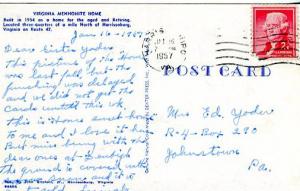 VIRGINIA MENNONITE HOME
Built in 1954 as a home for the aged and Retiring.
Located three-quarters of a mile West of Harrisonburg,
Virginia on Route 42.
Jan-16-1957
Dear Sister Yoder
This picture of the home
was last fall but the
finishing was delayed
and we did not get the
cards until this wk
This is "Home sweet home"
To me and I love it here
But miss being with the
dear ones at Denbigh
the ground is covered with
snow and it is
POST CARD
1957
Mrs Ed. Yoder
R-4-Box 290
Johnstown
Pa.